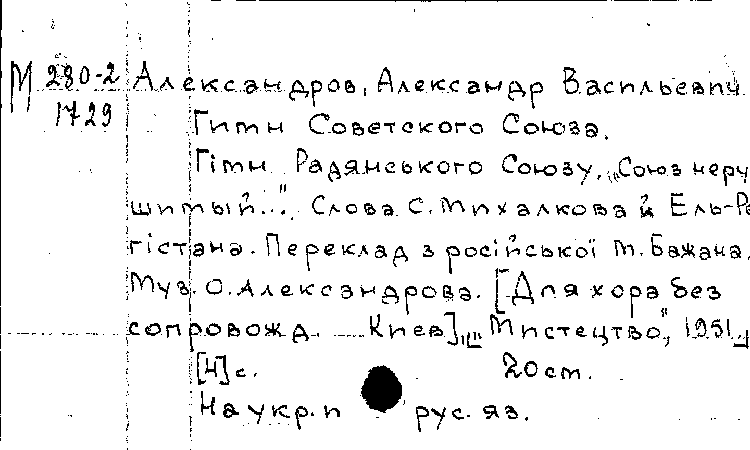 М 280-2 Александров, Александр Васильевич
1729 Гимн Советского Союза.
Гімн Радянського Союзу. „Союз неру
шимый...". Слова С. Михалкова й Ель-Ре
гістана. Переклад з російської М. Бажана.
Муз. О. Александрова. [Для хора без
сопровожд. Киев], „Мистецтво", 1951.
[4] с. 20 см.
На укр. и рус. яз.